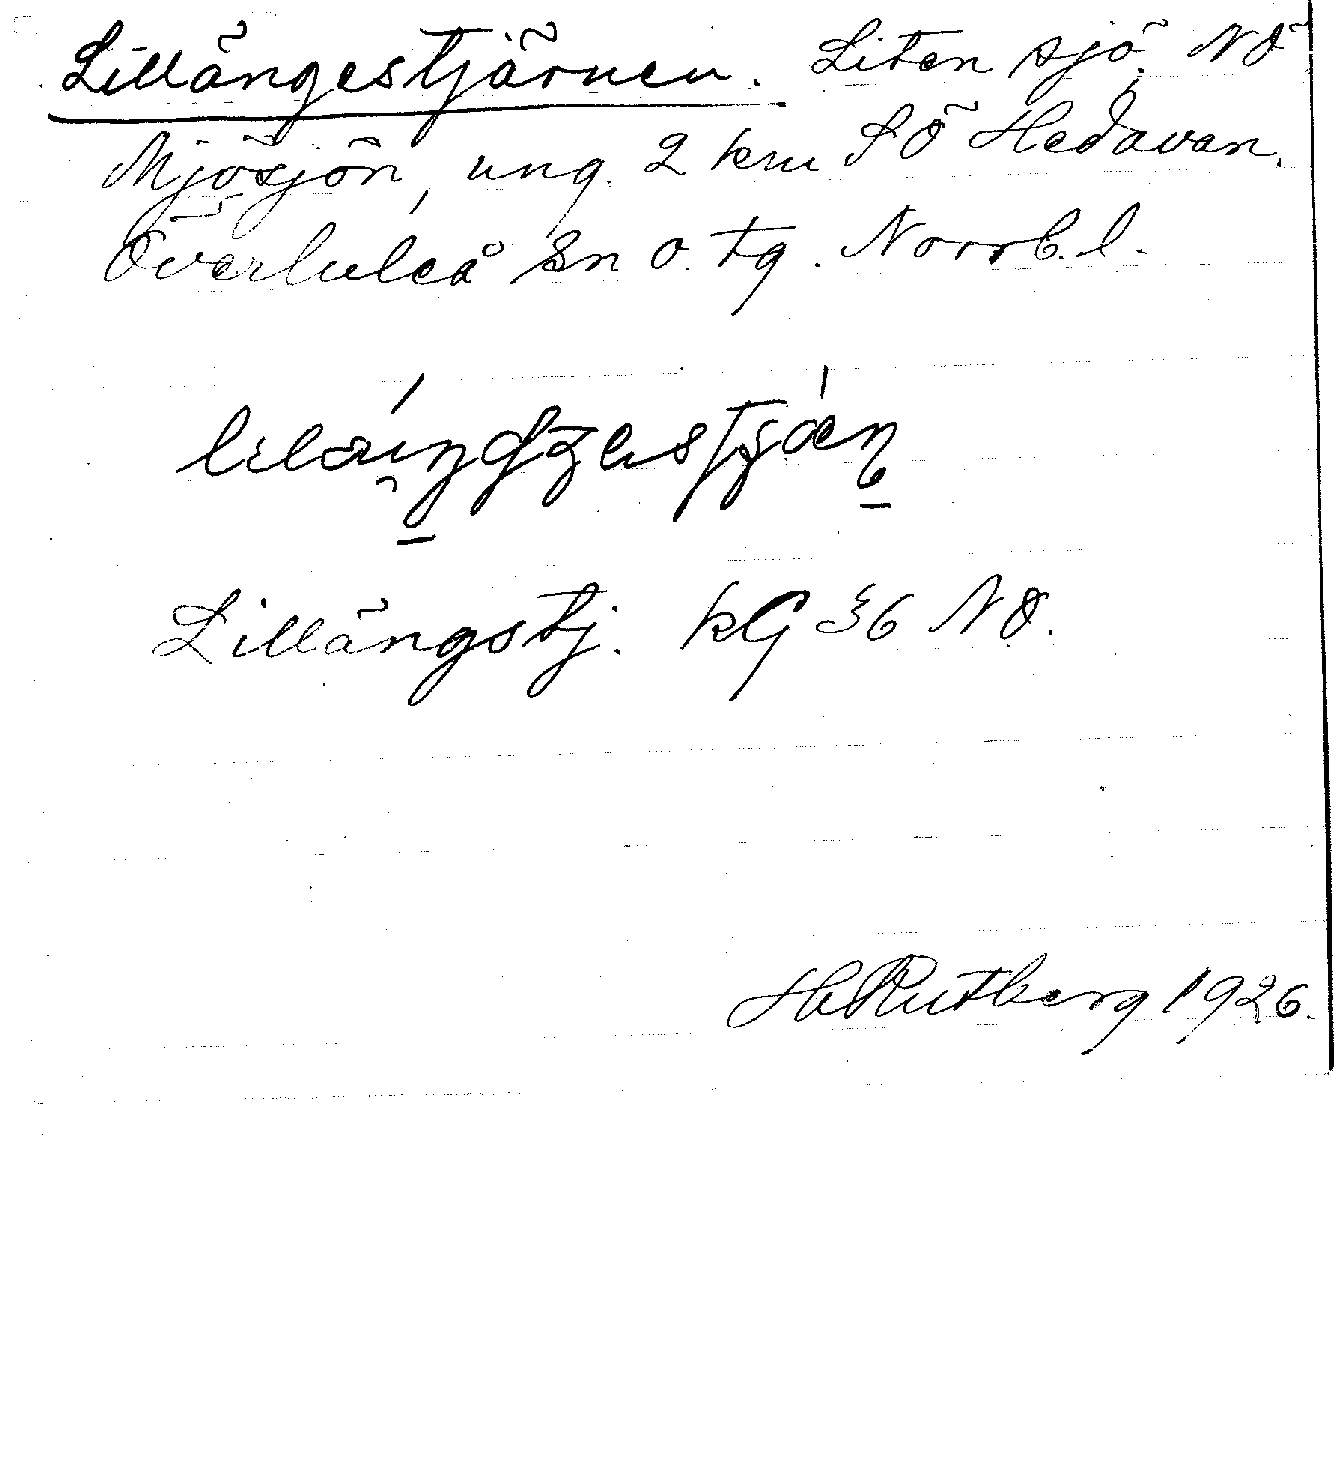 Lillängestjärnen. Liten sjö NÖ
Mjösjön, ung. 2 km SÖ Hedåvan.
Överluleå sn o. tg. Norrb. l.
Lillängstj. kG 36 NO.
H Rutberg 1926.